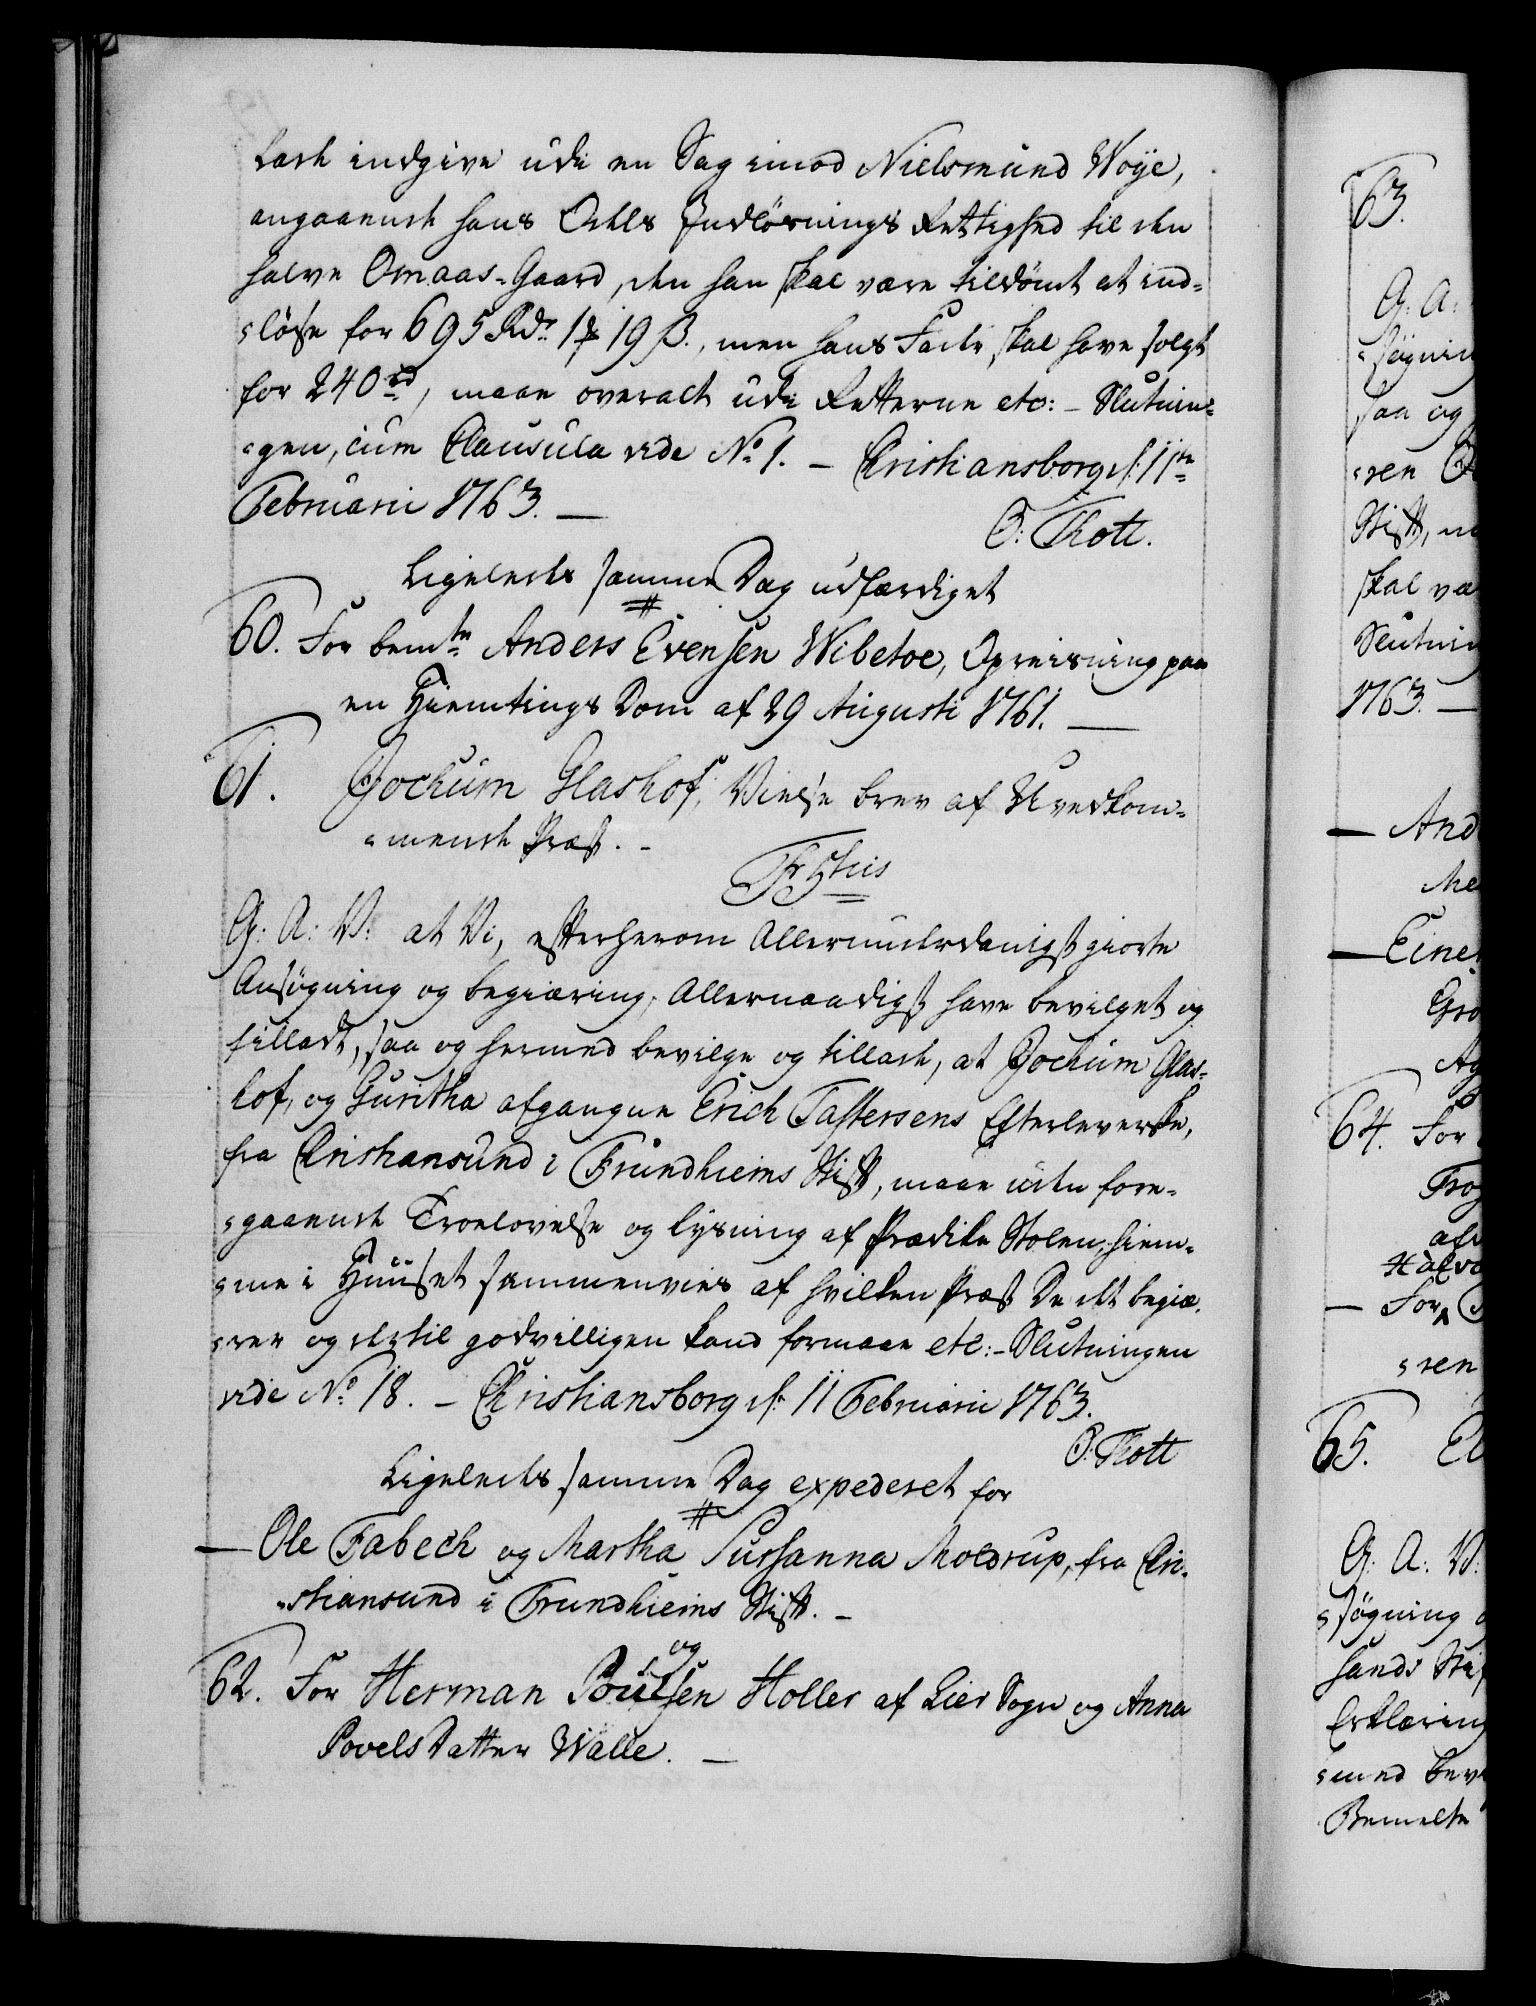 ladt indgive udi en Sag imod Nielsmund Woye,
angaaende hans Odels Indløsnings Rettighed til den
halve Omaas-Gaard, den han skal være tildömt at ind-
-løse for 695 Rdr 1 ꝑ 19 ß., men hans Fader skal have solgt
for 240 rd, maae overalt udi Retterne etc: - Slutnin-
-gen, cum Clausula vide No 1. - Christiansborg d: 11te
Februarii 1763. —
O: Thott.
Ligeledes samme Dag udfærdiget
60. For bemte Anders Evensen Wibetoe, Opreisning paa
en Hiemtings Dom af 29 Augusti 1761. —
61. Jochum Glashof, Vielse brev af Uvedkom-
-mende Præst. -
Fr: 5tus
G: A: V: at Vi, efter herom Allerunderdanigst giorte
Ansøgning og begiæring, Allernaadigst have bevilget og
tilladt, saa og hermed bevilge og tillade, at Jochum Glas-
hof, og Guritha afgangne Erich Tastersens Efterleverske,
fra Christiansund i Trundhiems Stift, maae uden fore-
-gaaende Troelovelse og Lysning af Prædike Stolen, hiem-
-me i Huuset sammenvies af hvilken Præst De det begiæ-
-rer og dertil godvilligen kand formaae etc: - Slutningen
vide No 18. - Christiansborg d: 11 Februarii 1763.
O: Thott
Ligeledes samme Dag expederet for
— Ole Fabech og Martha Sussanna Moldrup, fra Chri-
-stiansund i Trundhiems Stift. -
62. For Herman Poulsen og Holler af Lier Sogn og Anna
Povels Datter Walle. —
63.
G: A:
-søgning
saa og
-ren
Stift, m
skal væ
Slutnin
1763. —
— And
Me
— Einer
Gro
Ag
64. For
Trog
afd
Halvo
— For
-ren
65. El
G: A: V:
-søgning
sands Sti
Erklæring
-med bev
Bemelte